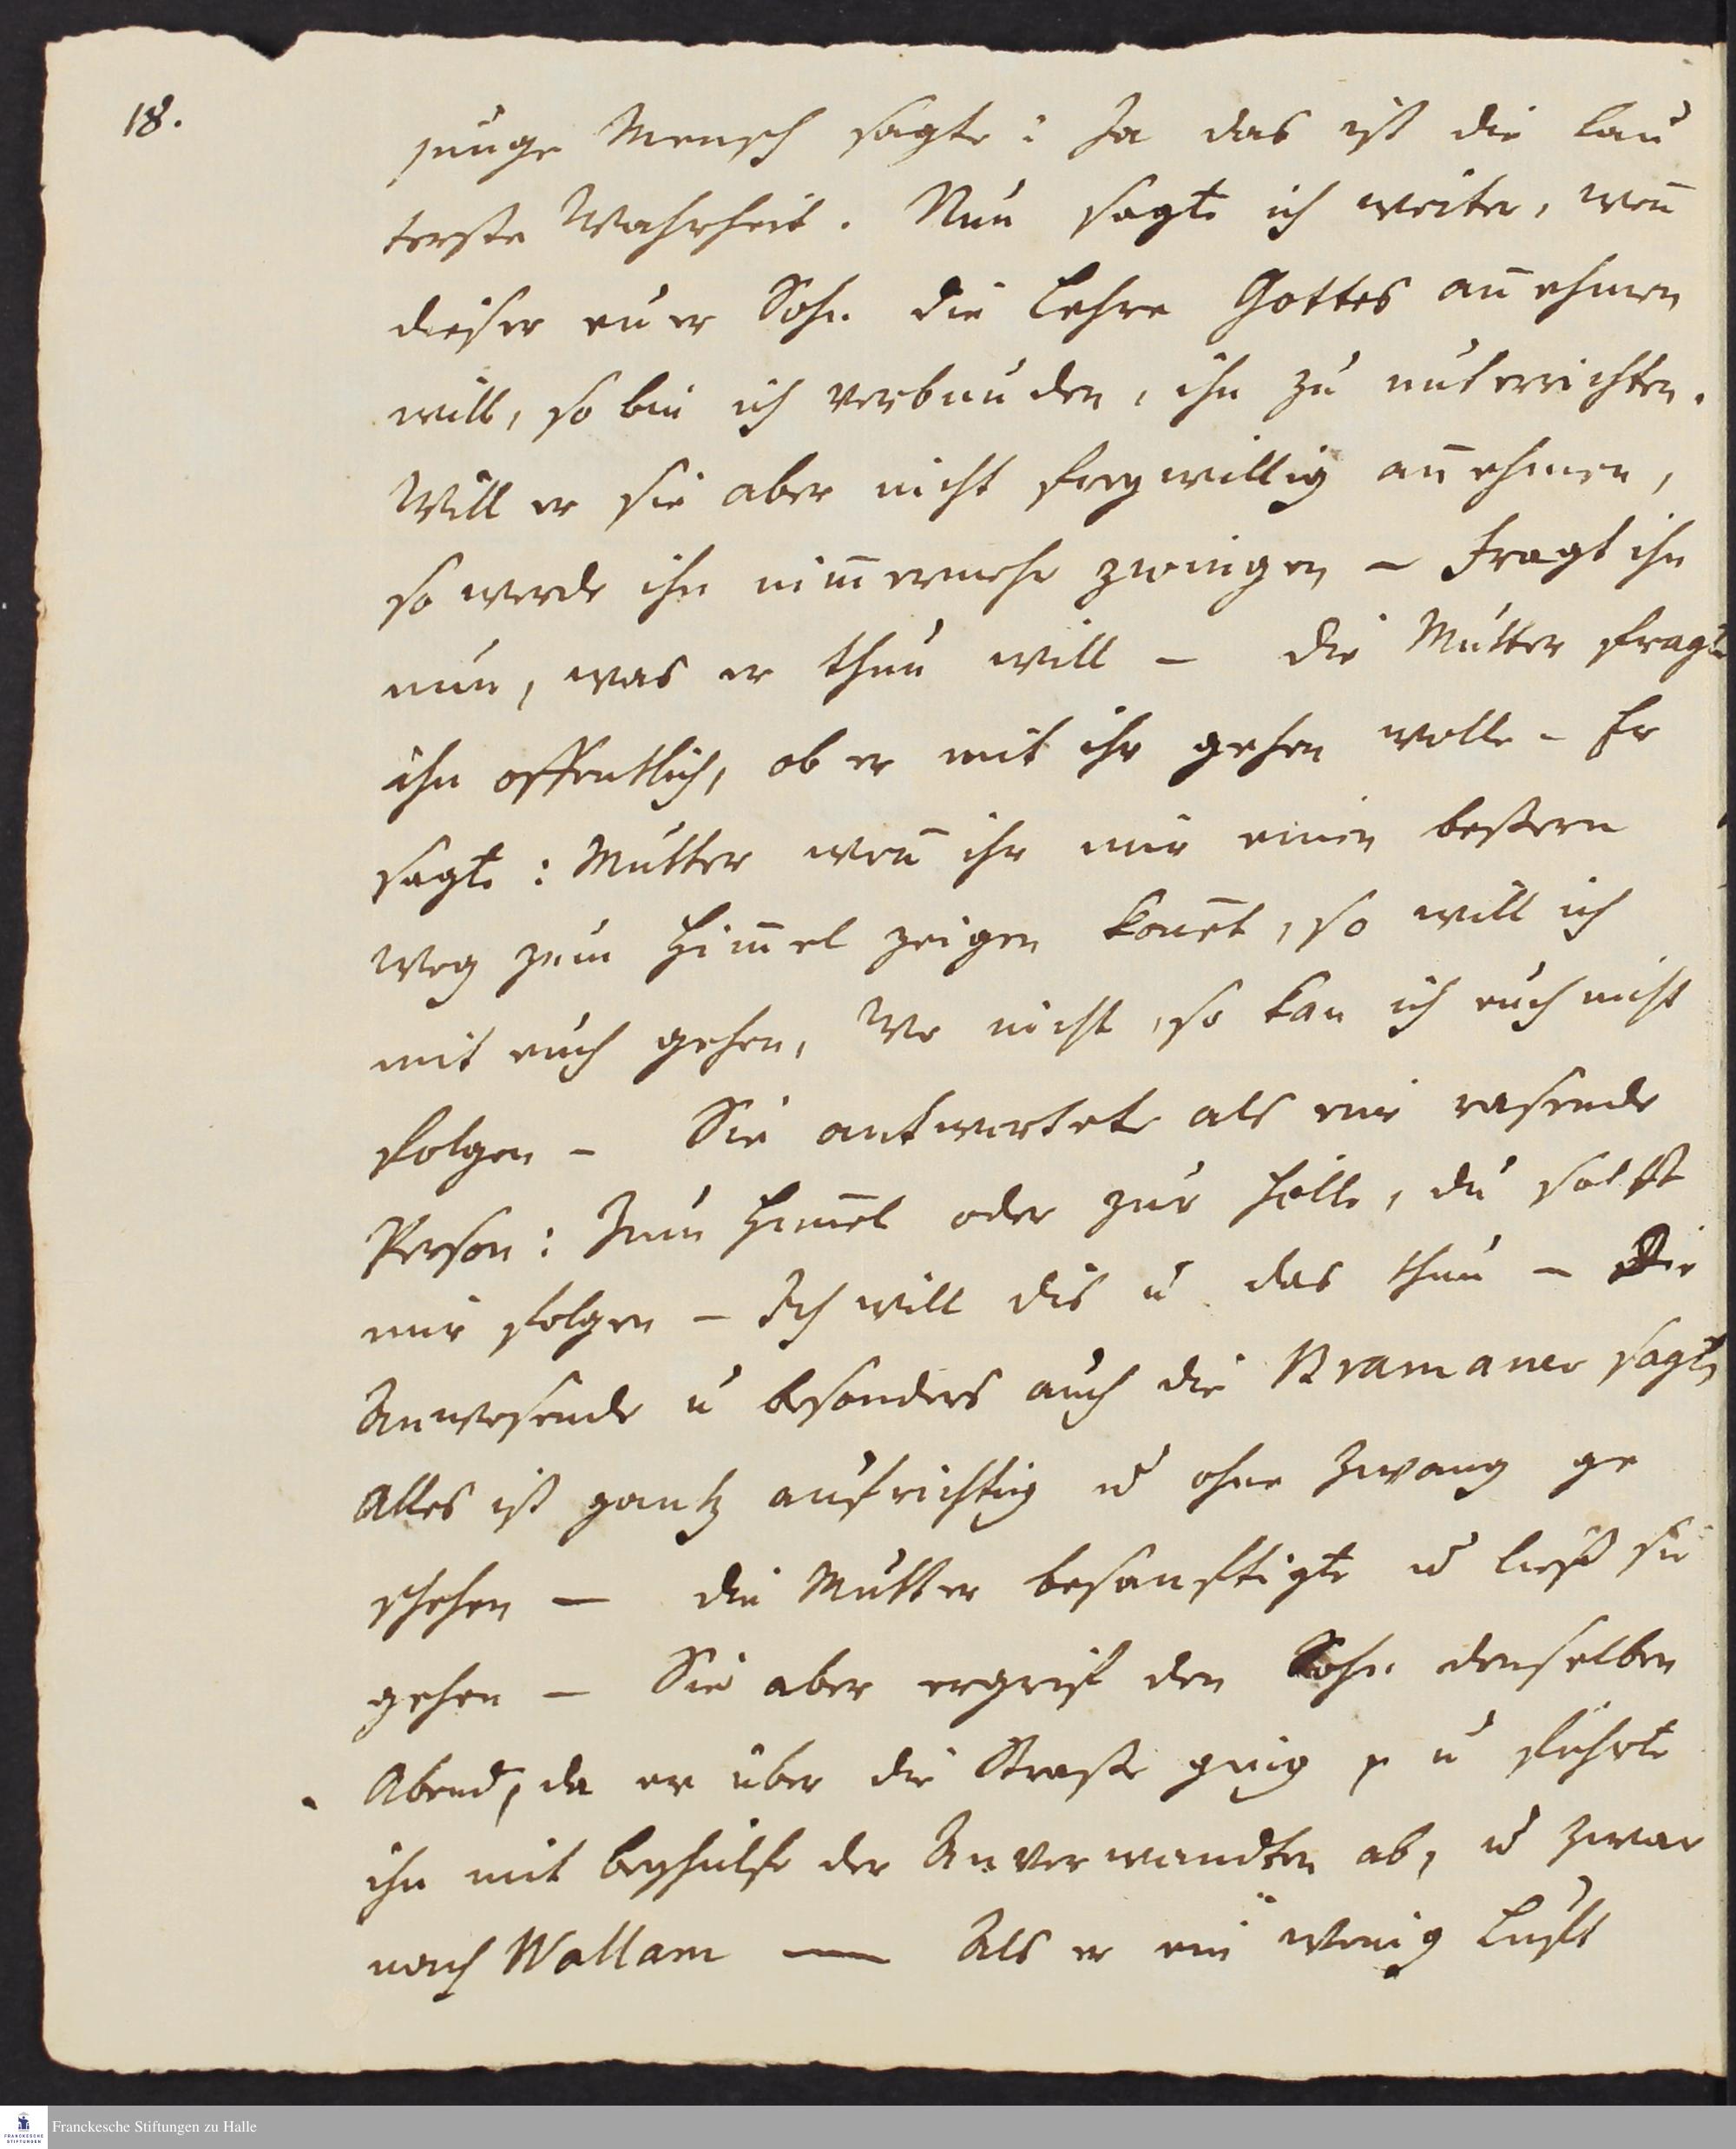 18.
junge Mensch sagte: Ja das ist die lau
terste Wahrheit. Nun sagte ich weiter, wen̄
dieser euer Sohn die Lehre Gottes an̄ehmen
will, so bin ich verbunden, ihn zu unterrichten.
Will er sie aber nicht freywillig an̄ehmen,
so werde ihn nim̄ermehr zwingen – Fragt ihn
nun, was er thun will – die Mutter fragte
ihn offentlich, ob er mit ihr gehen wolle – Er
sagte: Mutter wen̄ ihr mir einen bessern
Weg zum Him̄el zeigen kon̄et, so will ich
mit euch gehen, Wo nicht, so kan ich euch nicht
folgen – Sie antwortete als eine rasende
Person: Zum Him̄el oder zur Hölle, du solst
mir folgen – Ich will dis u das thun – Die
Anwesende u besonders auch die Bramaner sagten
Alles ist gantz aufrichtig u ohne Zwang ge
schehen – die Mutter besanftigte u ließ sie
gehen – Sie aber ergrif den Sohn denselben
Abend, da er über die Strasse ging u führte
ihn mit Beyhülfe der Anverwandten ab, u zwar
nach Wallam — Als er ein wenig Luft
Franckesche Stiftungen zu Halle